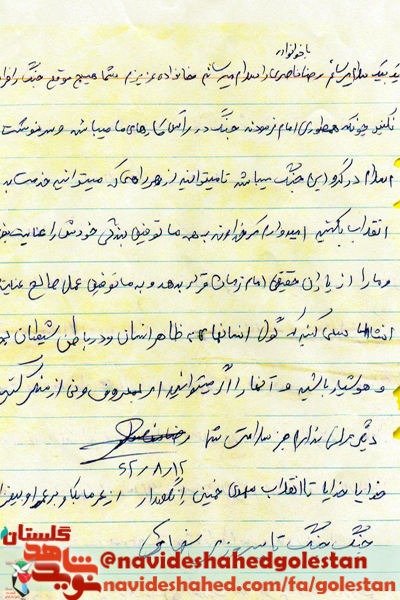 با خانواده
یک بیک سلام میرسانم رضا ناصری را سلام میرسانم خانواده عزیزم شما هیچ موقع جنگ را فرا
نکنید چونکه همطوری امام فرمودند جنگ در رأس کارهای ما میباشد و سرنوشت
اسلام در گرو این جنگ میباشد تا میتوانید از هر راهی که میتوانید خدمت به
انقلاب بکنید امیدوارم که خداوند به همه ما توفیق بندگی خودش را عنایت
و ما را از یاران حقیقی امام زمان قرار بدهد و به ما توفیق عمل صالح عنایت
انشاالله سعی کنید که گول انسانهای به ظاهر انسان و در باطن شیطان
و هوشیار باشید و آنها را اگر میتوانید امر بمعروف و نهی از منکر کنید
دیگر عرضی ندارم جز سلامتی شما رضا
۶۲/۸/۱۲
خدایا خدایا تا انقلاب مهدی خمینی را نگهدار از عمر ما بکاه و بر عمر او بیفزا
جنگ جنگ تا پیروزی
گلستان
نوید شاهد
@navideshahedgolestan
navideshahed.com/fa/golestan